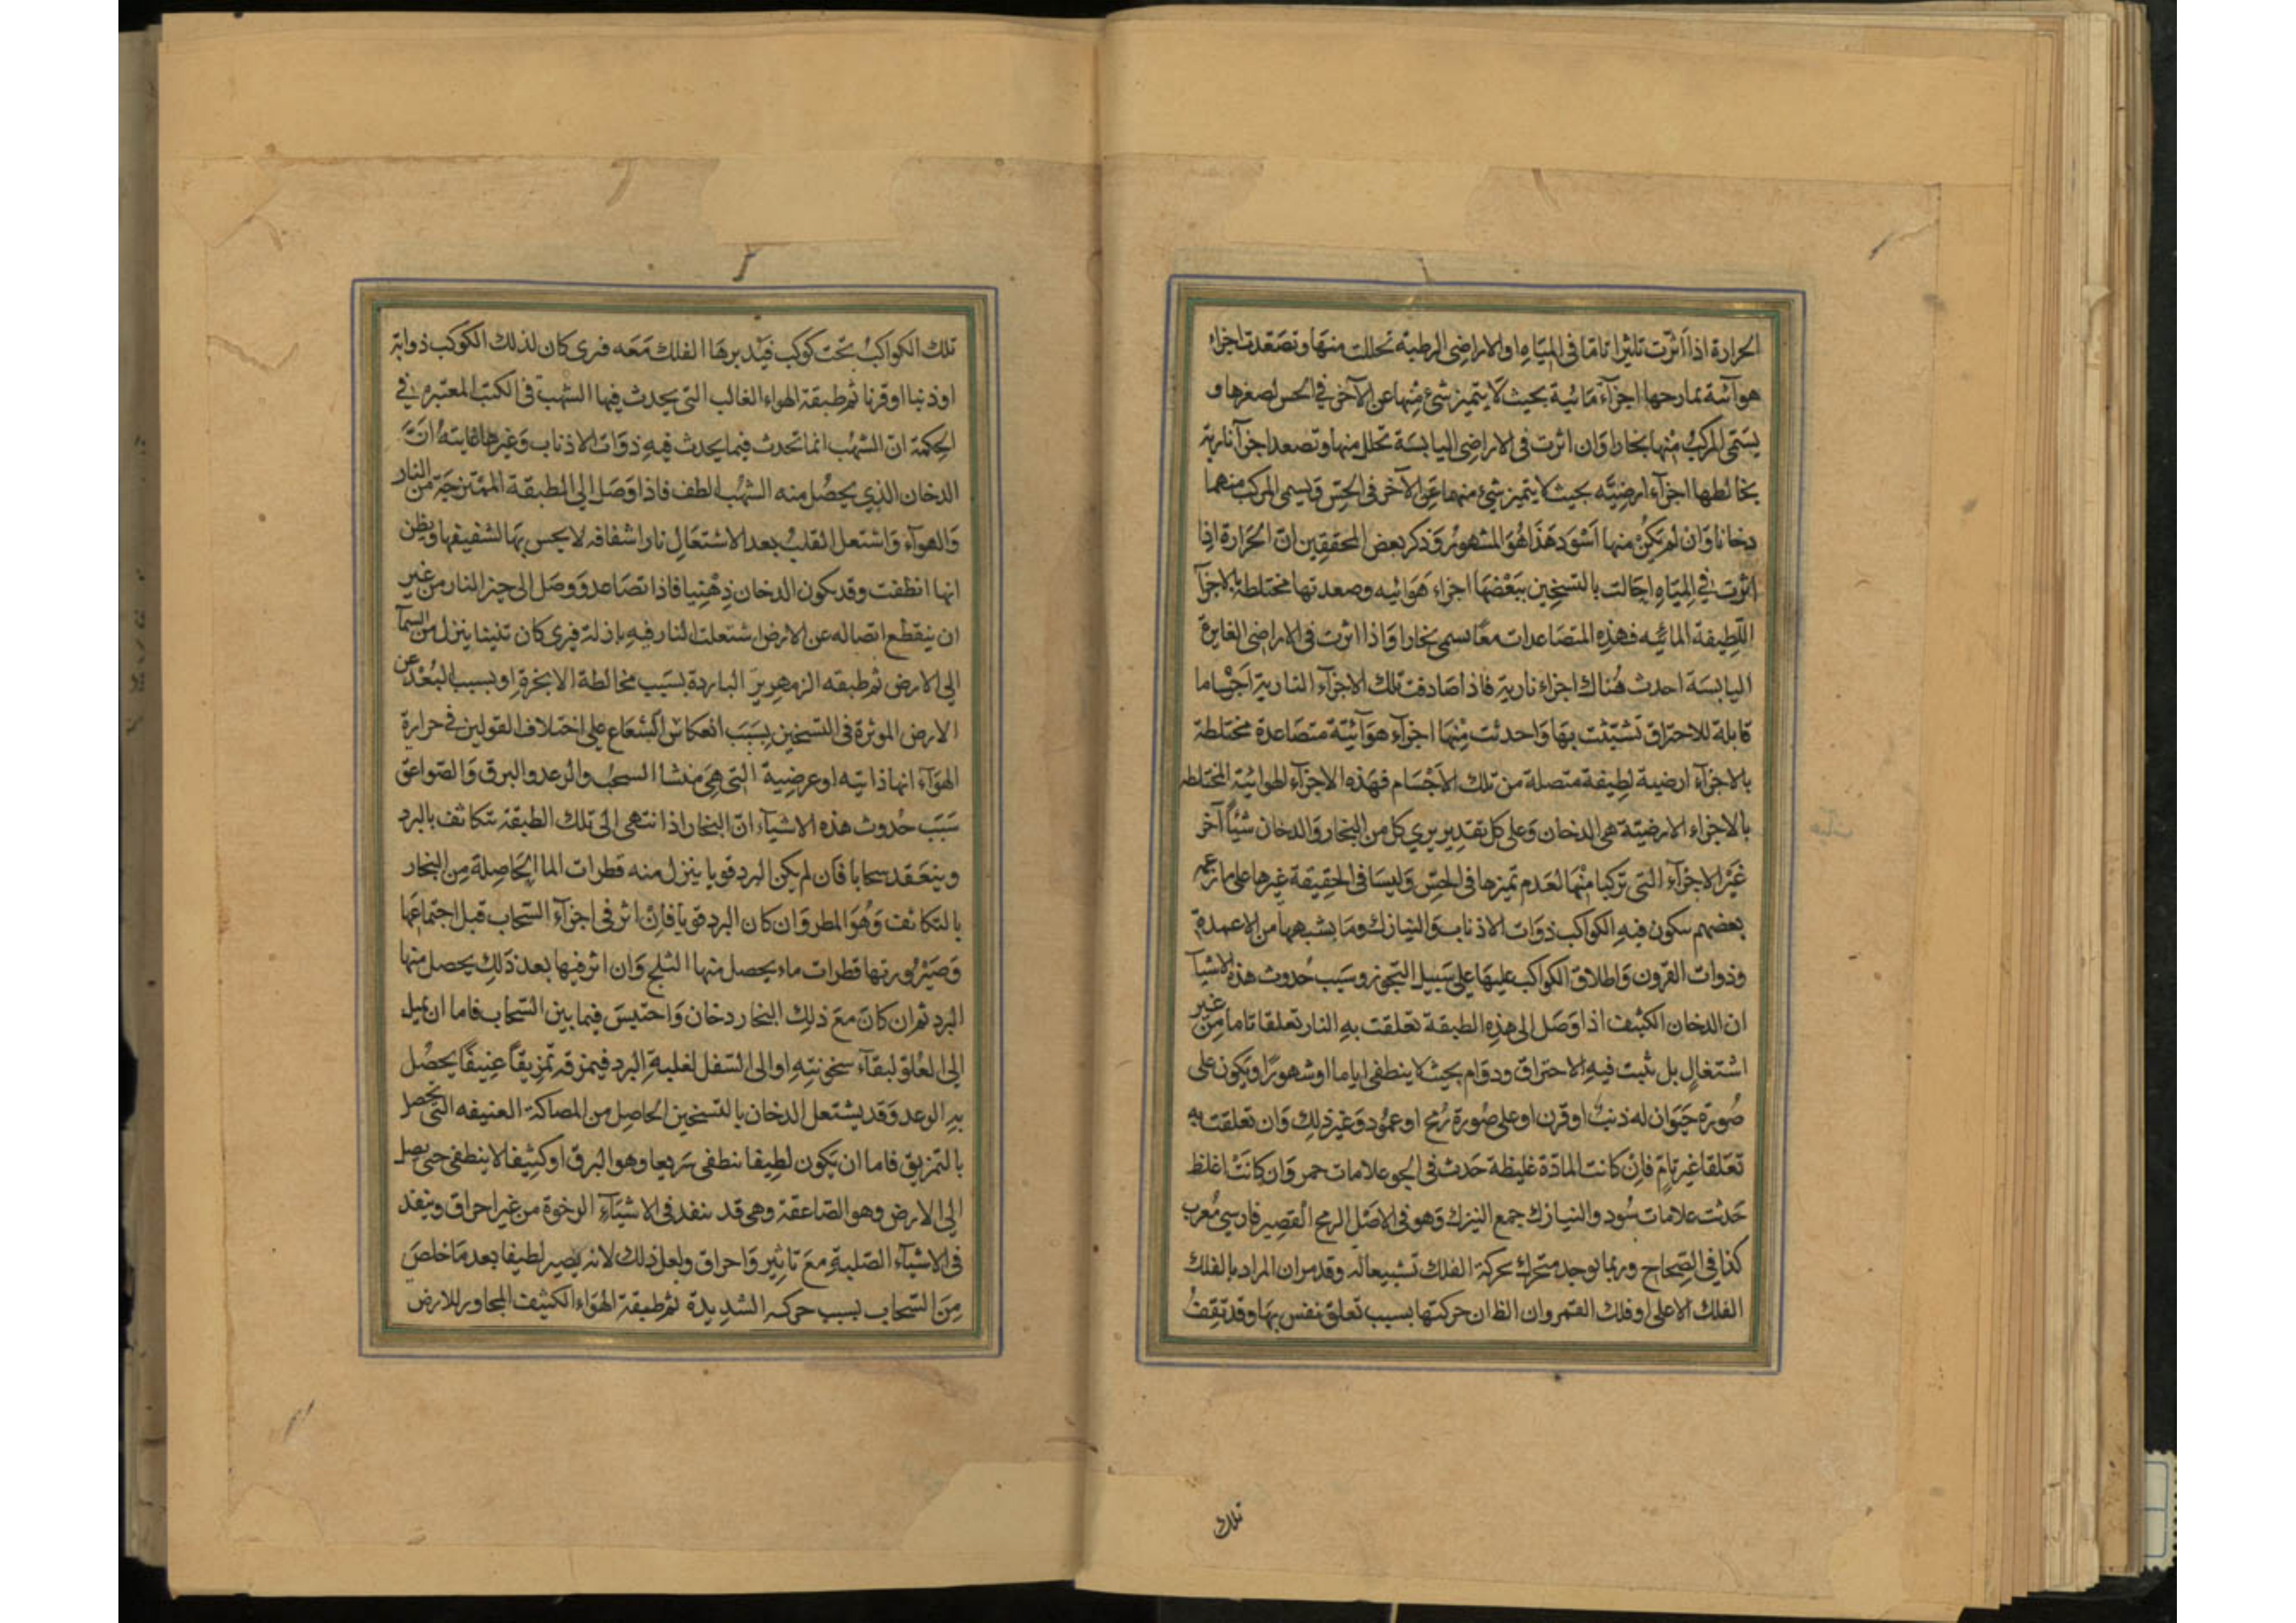 الحرارة اذا اثرت تاثيرا تاما فى المياه او الاراضى الرطبة تحللت منها وتصعدت اجزاء
هوآئية تمازحها اجزآء مائية بحيث لا يتميز شئ منها عن الآخر فى الحس لصغرها و
يسمى المركب منها بخارا وان اثرت فى الاراضى اليابسة تحلل منها وتصعد اجزآ نارية
يخالطها اجزآء ارضيه بحيث لا يتميز شئ منهما عن الآخر فى الحس ويسمى المركب منهما
دخانا وان لم يكن منها اسود هذا هو المشهور وذكر بعض المحققين ان الحرارة اذا
اثرت فى المياه احالت بالتسخين ببعضها اجزاء هوائيه وصعدتها مختلطة بالاجزآ
اللطيفة المائيه فهذه المتصاعدات معا يسمى بخارا واذا اثرت فى الاراضى الغايرة
اليابسة احدث هناك اجزاء نارية فاذا صادفت تلك الاجزآء النارية اجساما
قابلة للاحتراق تشبثت بها واحدثت منها اجزآء هوآئية متصاعدة مختلطة
بالاجزآء ارضية لطيفة متصلة من تلك الاجسام فهذه الاجزآء لهوائية المختلطه
بالاجزاء الارضية هى الدخان وعلى كل تقدير يرى كل من البخار والدخان شيئا آخر
غير الاجزآء التى تركبا منها لعدم تميزها فى الحس وليسا فى الحقيقة غيرها على ما زعم
بعضهم سكون فيه الكواكب ذوات الاذناب والنيازك وما يشبهها من الاعمدة
وذوات القرون واطلاق الكواكب عليها على سبيل التجوز وسبب حدوث هذه الاشيآ
ان الدخان الكثيف اذا وصل الى هذه الطبقة تعلقت به النار تعلقا تاما من غير
اشتغال بل ثبت فيه الاحتراق ودوام بحيث لا ينطفى اياما او شهورا ويكون على
صورة حيوان له ذنب او قرن او على صورة رمح او عمود وغير ذلك وان تعلقت به
تعلقا غير تام فان كانت المادة غليظة حدث فى الجو علامات حمر وان كانت اغلظ
حدثت علامات سود والنيازك جمع النيزك وهو فى الاصل الرمح القصير فارسى معرب
كذا فى الصحاح وربما يوجد متحرك بحركة الفلك تشبيعا له وقد مر ان المراد بالفلك
الفلك الاعلى او فلك القمر وان الظان حركتها بسبب تعلق نفس بها وقد تقف
تلك
تلك الكواكب تحت كوكب فيديرها الفلك معه فيرى كان لذلك الكوكب ذوابة
او ذنبا او قرنا ثم طبقة الهواء الغالب التى يحدث فيها الشهب فى الكتب المعتبرة فى
الحكمة ان الشهب انما تحدث فيما يحدث فيه ذوات الاذناب وغيرها غايته ان
الدخان الذى يحصل منه الشهب الطف فاذا وصل الى الطبقة الممتزجة من النار
والهوآء واشتعل انقلب بعد الاشتعال نارا شفافه لا يحس بها لشفيفها ويظن
انها انطفت وقد يكون الدخان ذهنيا فاذا تصاعد ووصل الى حيز النار من غير
ان ينقطع اتصاله عن الارض اشتعلت النار فيه نازلة فيرى كان تنينا ينزل من السمآ
الى الارض ثم طبقه الزمهرير الباردة بسبب مخالطة الابخرة او بسبب البعد عن
الارض الموثرة فى التسخين بسبب انعكاس الشعاع على اختلاف القولين فى حرارة
الهوآء انها ذاتيه او عرضية التى هى منشا السحب والرعد والبرق والصواعق
سبب حدوث هذه الاشيآء ان البخار اذا انتهى الى تلك الطبقة تتكاثف بالبرد
وينعقد سحابا فان لم يكن البرد قويا ينزل منه قطرات الما الحاصلة من البخار
بالتكاثف وهو المطر وان كان البرد قويا فان اثر فى اجزآء السحاب قبل اجتماعها
وصيرورتها قطرات ماء يحصل منها الثلج وان اثر فيها بعد ذلك يحصل منها
البرد ثم ان كان مع ذلك البخار دخان واحتبس فيما بين السحاب فاما ان يميل
الى العلو لبقآء سخونته او الى السفل لغلبة البرد فيمزقه تمزيقا عنيفا يحصل
به الوعد وقد يشتعل الدخان بالتسخين الحاصل من المصاكة العنيفه التى يحصل
بالتمزيق فاما ان يكون لطيفا ينطفى سريعا وهو البرق او كثيفا لا ينطفى حتى يصل
الى الارض وهو الصاعقة وهى قد ينفد فى الاشيآء الرخوة من غير احراق وينفد
فى الاشيآء الصلبة مع تاثير واحراق ولعل ذلك لانه يصير لطيفا بعد ما خلص
من السحاب بسبب حركه الشديدة ثم طبقة الهواء الكثيف المجاور للارض